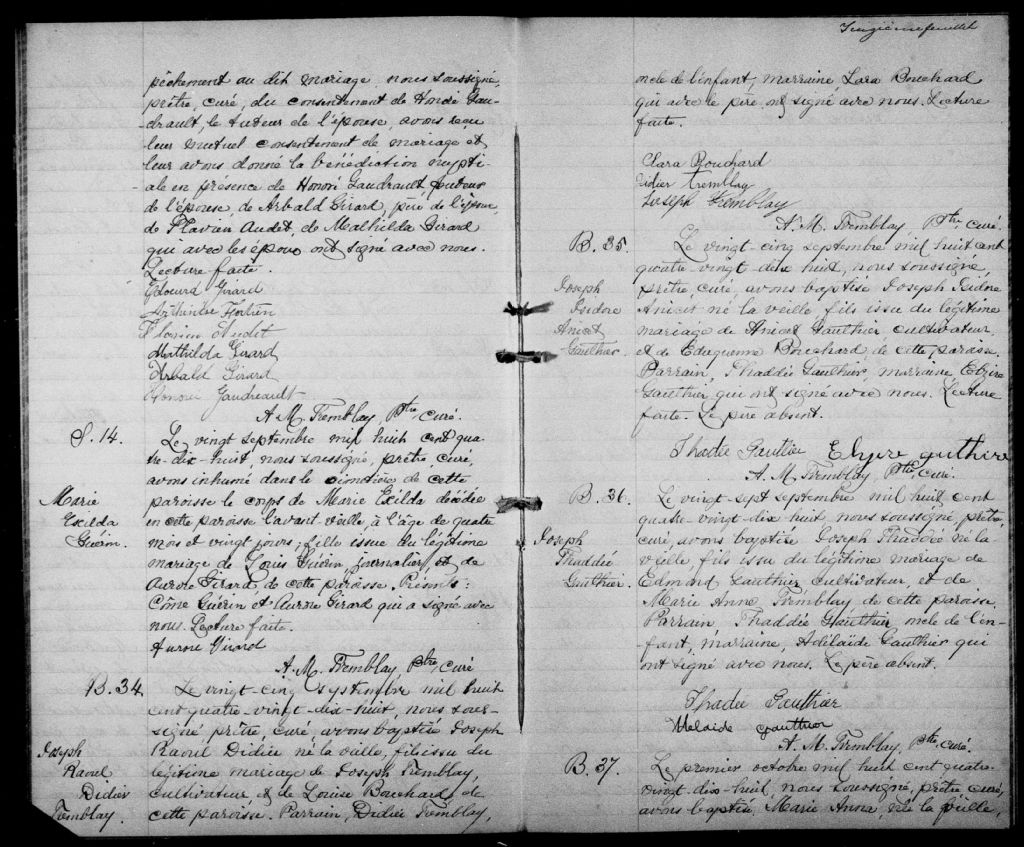 pêchement au dit mariage, nous soussigné,
prêtre, curé, du consentement de Honoré Gau-
drault, le tuteur de l'épouse, avons reçu
leur mutuel consentement de mariage et
leur avons donné la bénédiction nupti-
ale en présence de Honoré Gaudrault, tuteur
de l'épouse, de Arbald Girard, père de l'époux,
de Flavien Audet, de Mathilda Girard
qui avec les époux ont signé avec nous.
Lecture faite.
Edouard Girard
Audet
Mathilda Girard
Arbald Girard
Honoré Gaudreault
A. M. Tremblay, Ptre, curé.
S. 14.
Marie
Exilda
Guérin.
Le vingt septembre mil huit cent qua-
tre-dix-huit, nous soussigné, prêtre, curé,
avons inhumé dans le cimetière de cette
paroisse le corps de Marie Exilda décédée
en cette paroisse l'avant-veille, à l'âge de quatre
mois et vingt jours, fille issue du légitime
mariage de Louis Guérin, journalier, et de
Aurore Girard, de cette paroisse. Présents:
Côme Guérin et Aurore Girard qui a signé avec
nous. Lecture faite.
Aurore Girard
A. M. Tremblay Ptre, curé
B. 34
Joseph
Raoul
Didier
Tremblay.
Le vingt-cinq septembre mil huit
cent quatre-vingt-dix-huit, nous sous-
signé, prêtre, curé, avons baptisé Joseph
Raoul Didier né la veille, fils issu du
légitime mariage de Joseph Tremblay,
cultivateur et de Louise Bouchard, de
cette paroisse. Parrain, Didier Tremblay,
feuillet
oncle de l'enfant, marraine, Lara Bouchard
qui avec le père ont signé avec nous. Lecture
faite.
Clara Bouchard
Didier Tremblay
Joseph Tremblay
A. M. Tremblay Ptre, curé.
B. 35
Joseph
Isidore
Anicet
Gaulthier.
Le vingt-cinq septembre mil huit cent
quatre-vingt-dix huit, nous soussigné,
prêtre, curé avons baptisé Joseph Isidore
Anicet né la veille fils issu du légitime
mariage de Anicet Gaulthier cultivateur,
et de Bouchard, de cette paroisse.
Parrain, Thaddée Gaulthier, marraine Elzire
Gauthier, qui ont signé avec nous. Lecture
faite. Le père absent.
Thadée Gautlier Elzire guthire
A. M. Tremblay, Ptre, curé.
B. 36.
Joseph
Thaddée
Gauthier.
Le vingt-sept septembre mil huit cent
quatre-vingt-dix huit, nous soussigné prêtre
curé, avons baptisé Joseph Thaddée né la
veille, fils issu du légitime mariage de
Edmond Gauthier cultivateur, et de
Marie Anne Tremblay de cette paroisse.
Parrain Thaddée Gauthier oncle de l'en-
fant, marraine, Adélaïde Gauthier qui
ont signé avec nous. Le père absent.
Thadée Gauthier
Adelaide gauthier
A. M. Tremblay, Ptre, curé.
B. 37.
Le premier octobre mil huit cent quatre
vingt dix-huit, nous soussigné, prêtre curé,
avons baptisé, Marie Anna, née la veille,